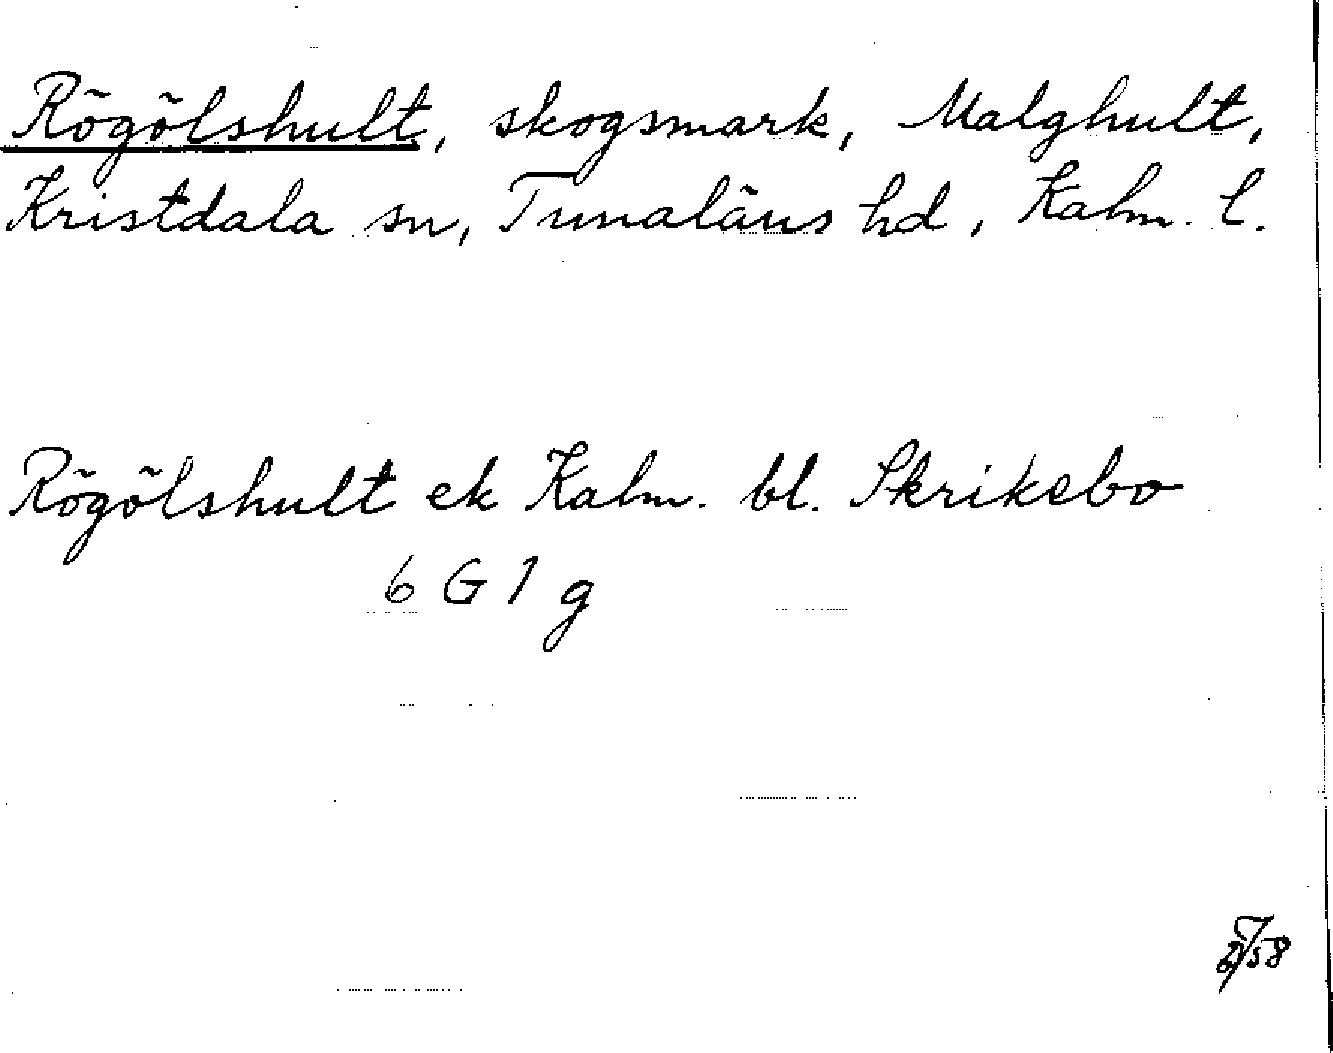 Rögölshult, skogsmark, Malghult,
Kristdala sn, Tunaläns hd, Kalm. l.
Rögölshult ek Kalm. bl. Skrikebo
6 G 1 g